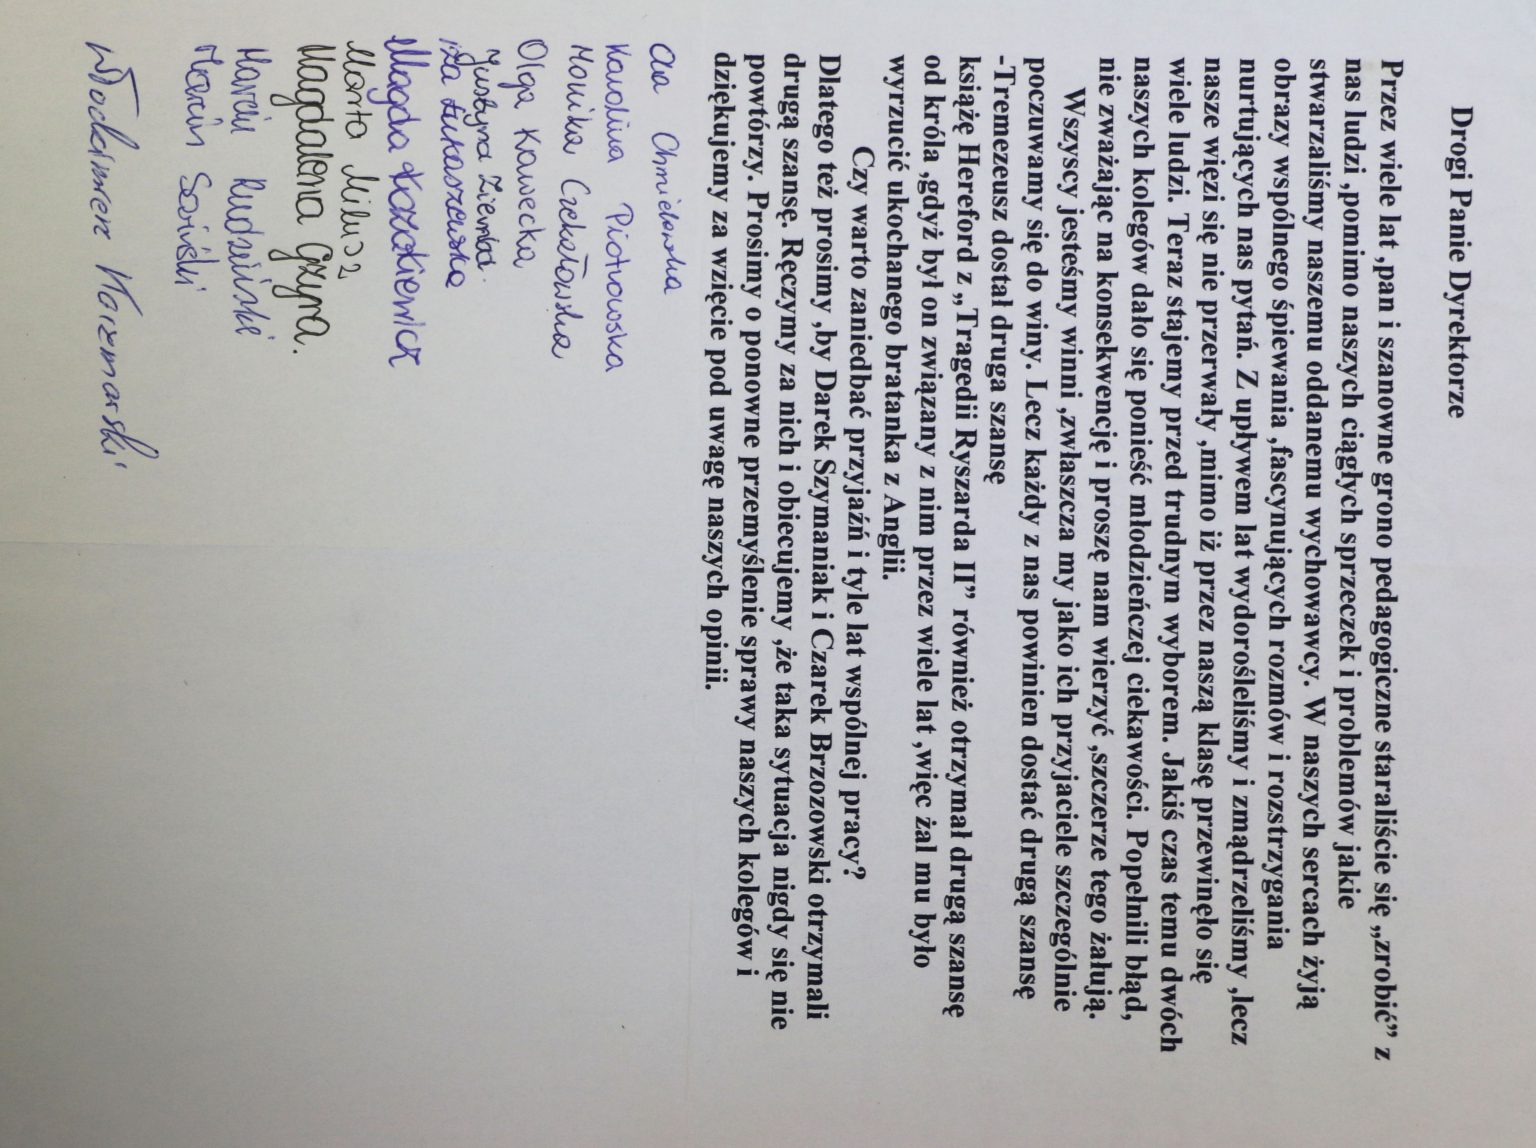 Drogi Panie Dyrektorze
Przez wiele lat ,pan i szanowne grono pedagogiczne staraliście się „zrobić” z
nas ludzi ,pomimo naszych ciągłych sprzeczek i problemów jakie
stwarzaliśmy naszemu oddanemu wychowawcy. W naszych sercach żyją
obrazy wspólnego śpiewania ,fascynujących rozmów i rozstrzygania
nurtujących nas pytań. Z upływem lat wydorośleliśmy i zmądrzeliśmy ,lecz
nasze więzi się nie przerwały ,mimo iż przez naszą klasę przewinęło się
wiele ludzi. Teraz stajemy przed trudnym wyborem. Jakiś czas temu dwóch
naszych kolegów dało się ponieść młodzieńczej ciekawości. Popełnili błąd,
nie zważając na konsekwencję i proszę nam wierzyć ,szczerze tego żałują.
Wszyscy jesteśmy winni ,zwłaszcza my jako ich przyjaciele szczególnie
poczuwamy się do winy. Lecz każdy z nas powinien dostać drugą szansę
-Tremezeusz dostał druga szansę
książę Hereford z „Tragedii Ryszarda II” również otrzymał drugą szansę
od króla ,gdyż był on związany z nim przez wiele lat ,więc żal mu było
wyrzucić ukochanego bratanka z Anglii.
Czy warto zaniedbać przyjaźń i tyle lat wspólnej pracy?
Dlatego też prosimy ,by Darek Szymaniak i Czarek Brzozowski otrzymali
drugą szansę. Ręczymy za nich i obiecujemy ,że taka sytuacja nigdy się nie
powtórzy. Prosimy o ponowne przemyślenie sprawy naszych kolegów i
dziękujemy za wzięcie pod uwagę naszych opinii.
Chmielewska
Karolina Piotrowska
Monika Czekałowska
Olga Kawecka
Justyna Ziemka.
Iza Łukaszewska
Magda
Marta Milusz
Magdalena Gzyra.
Marcin Rudziński
Marcin
Włodzimierz Karzmarski